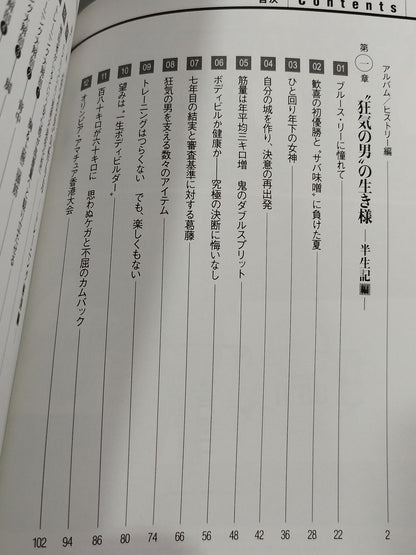 目次
Contents
アルバム／ヒストリー編 2
第一章 〝狂気の男〟の生き様——半生記編——
01 ブルース・リーに憧れて 22
02 歓喜の初優勝と〝サバ味噌〟に負けた夏 28
03 ひと回り年下の女神 36
04 自分の城を作り、決意の再出発 42
05 筋量は年平均三キロ増 鬼のダブルスプリット 48
06 ボディビルか健康か 究極の決断に悔いなし 56
07 七年目の結実と審査基準に対する葛藤 66
08 狂気の男を支える数々のアイテム 74
09 トレーニングはつらくない でも、楽しくもない 80
10 望みは〝一生ボディビルダー〟 86
11 百八十キロが六十キロに 思わぬケガと不屈のカムバック 94
12 オリンピア・アマチュア香港大会 102